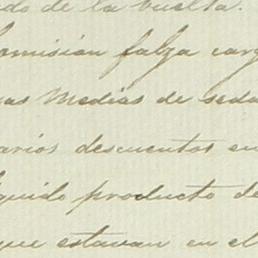 do de la buelta.
omision falza carg
as Medias de seda
arios descuentos en
quido producto de
que estavan en el